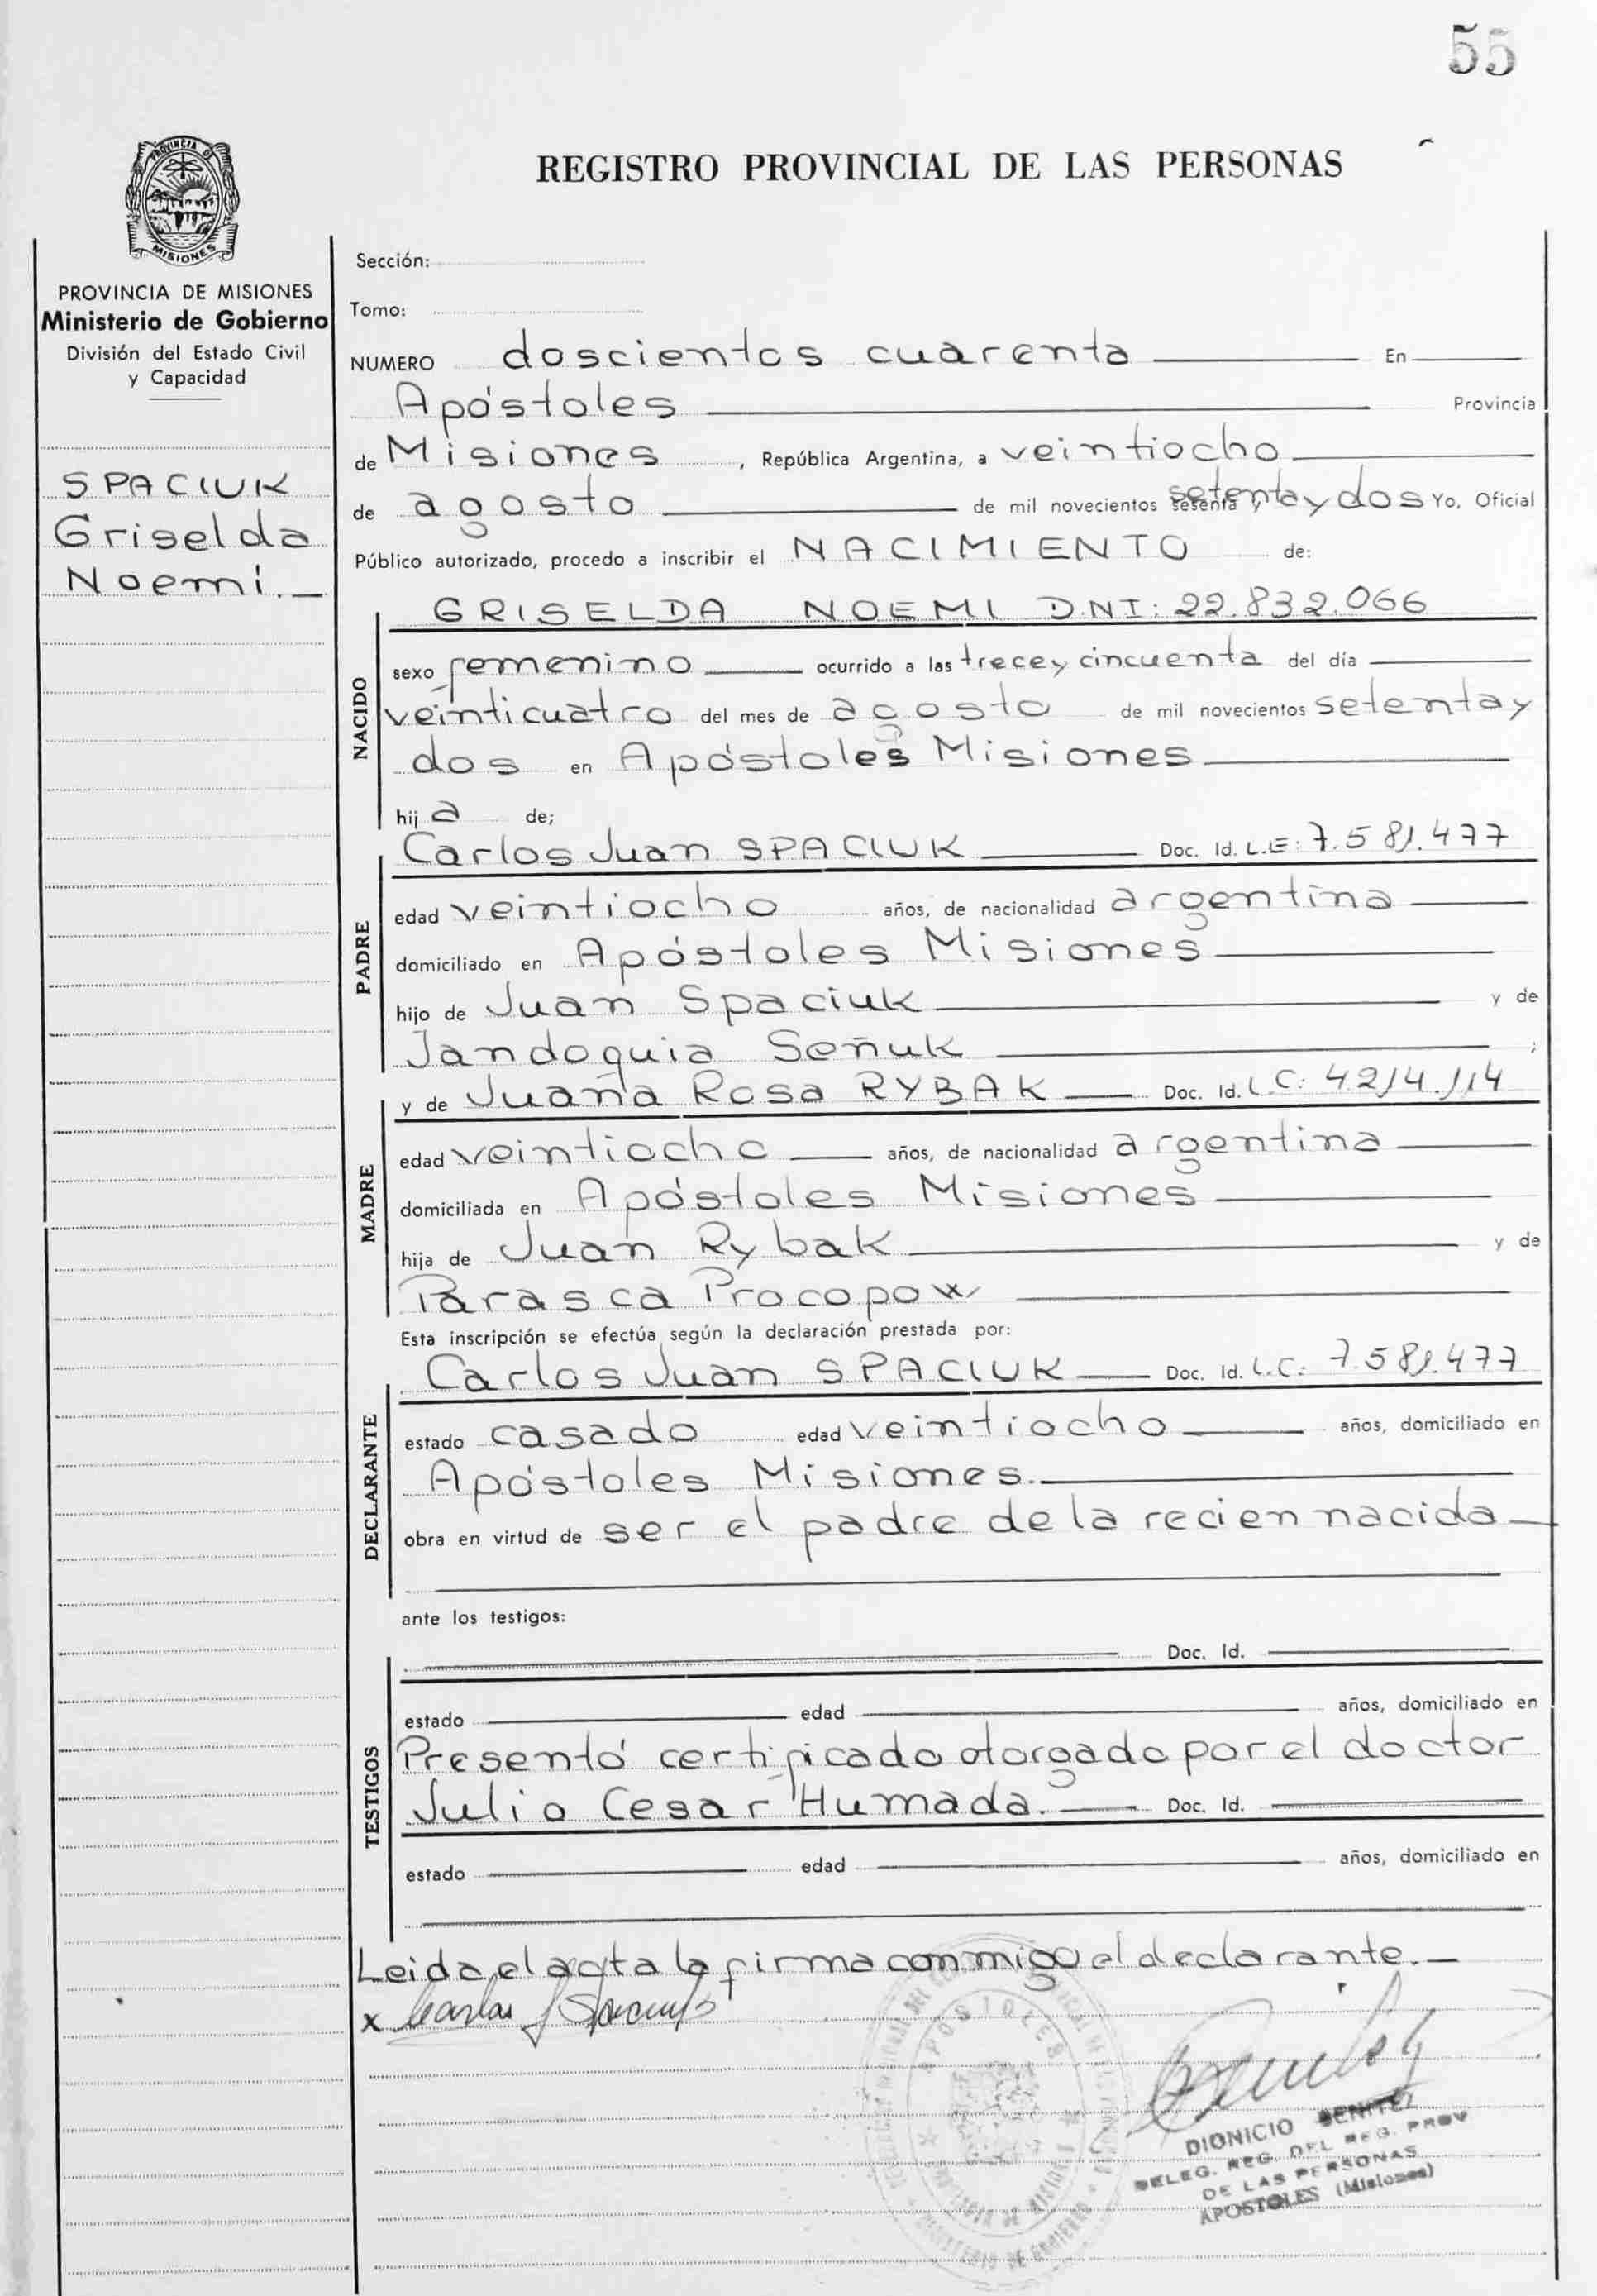 55
REGISTRO PROVINCIAL DE LAS PERSONAS
PROVINCIA DE
MISIONES
PROVINCIA DE MISIONES
Ministerio de Gobierno
División del Estado Civil
y Capacidad
SPACIUK
Griselda
Noemí.—
Sección:
Tomo:
NUMERO doscientos cuarenta — En —
Apóstoles — Provincia
de Misiones, República Argentina, a veintiocho —
de agosto — de mil novecientos sesenta y setenta y dos Yo, Oficial
Público autorizado, procedo a inscribir el NACIMIENTO de:
GRISELDA NOEMI D.N.I: 22.832.066
NACIDO
sexo femenino — ocurrido a las trece y cincuenta del día —
veinticuatro del mes de agosto de mil novecientos setenta y
dos en Apóstoles Misiones —
hij a de;
Carlos Juan SPACIUK — Doc. Id. L.E: 7.581.477
PADRE
edad veintiocho años, de nacionalidad argentina —
domiciliado en Apóstoles Misiones —
hijo de Juan Spaciuk — y de
Jandoquia Señuk — ;
y de Juana Rosa RYBAK — Doc. Id. L.C: 4.214.114
MADRE
edad veintiocho — años, de nacionalidad argentina —
domiciliada en Apóstoles Misiones —
hija de Juan Rybak — y de
Parasca Procopow —
Esta inscripción se efectúa según la declaración prestada por:
Carlos Juan SPACIUK — Doc. Id. L.C: 7.581.477
DECLARANTE
estado casado edad veintiocho — años, domiciliado en
Apóstoles Misiones. —
obra en virtud de ser el padre de la recien nacida —
ante los testigos:
— Doc. Id. —
TESTIGOS
estado — edad — años, domiciliado en
Presentó certificado otorgado por el doctor
Julio Cesar Humada. — Doc. Id. —
estado — edad — años, domiciliado en
Leida el acta la firma conmigo el declarante. —
x Carlos J Spaciuk
APOSTOLES
DIONICIO BENITEZ
DELEG. REG. DEL REG. PROV
DE LAS PERSONAS
APOSTOLES (Misiones)